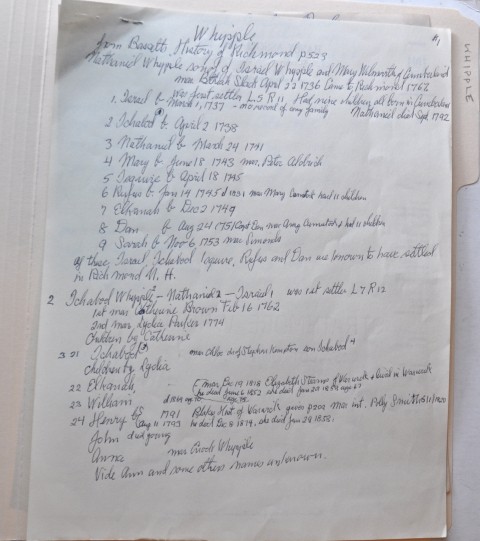 #1
WHIPPLE
Whipple
from Bassett's History of Richmond p 523
Nathaniel Whipple son of Israel Whipple and Mary Wilmarth of Cumberland
mar April 22 1736 Came to Richmond 1762
was first settler L 5 R 11 Had nine children all born in Cumberland
1. Israel b March 1, 1737 - no record of any family Nathaniel died Sept 1792
2 Ichabod b April 2 1738
3 Nathaniel b March 24 1741
4 Mary b June 18 1743 mar. Peter Aldrich
5 b April 18 1745
6 Rufus b Jan 14 1745 d 1831 mar Mary had 11 children
7 Elkanah b Dec 2 1749
8 Dan b Aug 24 1751 Capt Dan mar Amy had 11 children
9 Sarah b Nov 6 1753 mar Simonds
Of these, Israel Ichabod, Rufus and Dan are known to have settled
in Richmond N. H.
2 Ichabod Whipple - Nathaniel 2 - Israel 1 was 1st settler L 7 R 12
1st mar Catherine Brown Feb 16 1762
2nd mar Lydia Parker 1774
Children by Catherine
21 Ichabod mar Chloe dau of Stephen son Ichabod 4
children by Lydia
22 Elkanah, mar Dec 19 1818 Elizabeth of Warwick & lived in Warwick
he died June 6 1852 she died Jan
23 William
24 Henry 1791 of Warwick mar int. Polly
Aug 11 1793 he died Dec 8 1879, she died Jan 29 1852.
John died young
mar Enoch Whipple
Vide Ann and some others names unknown.